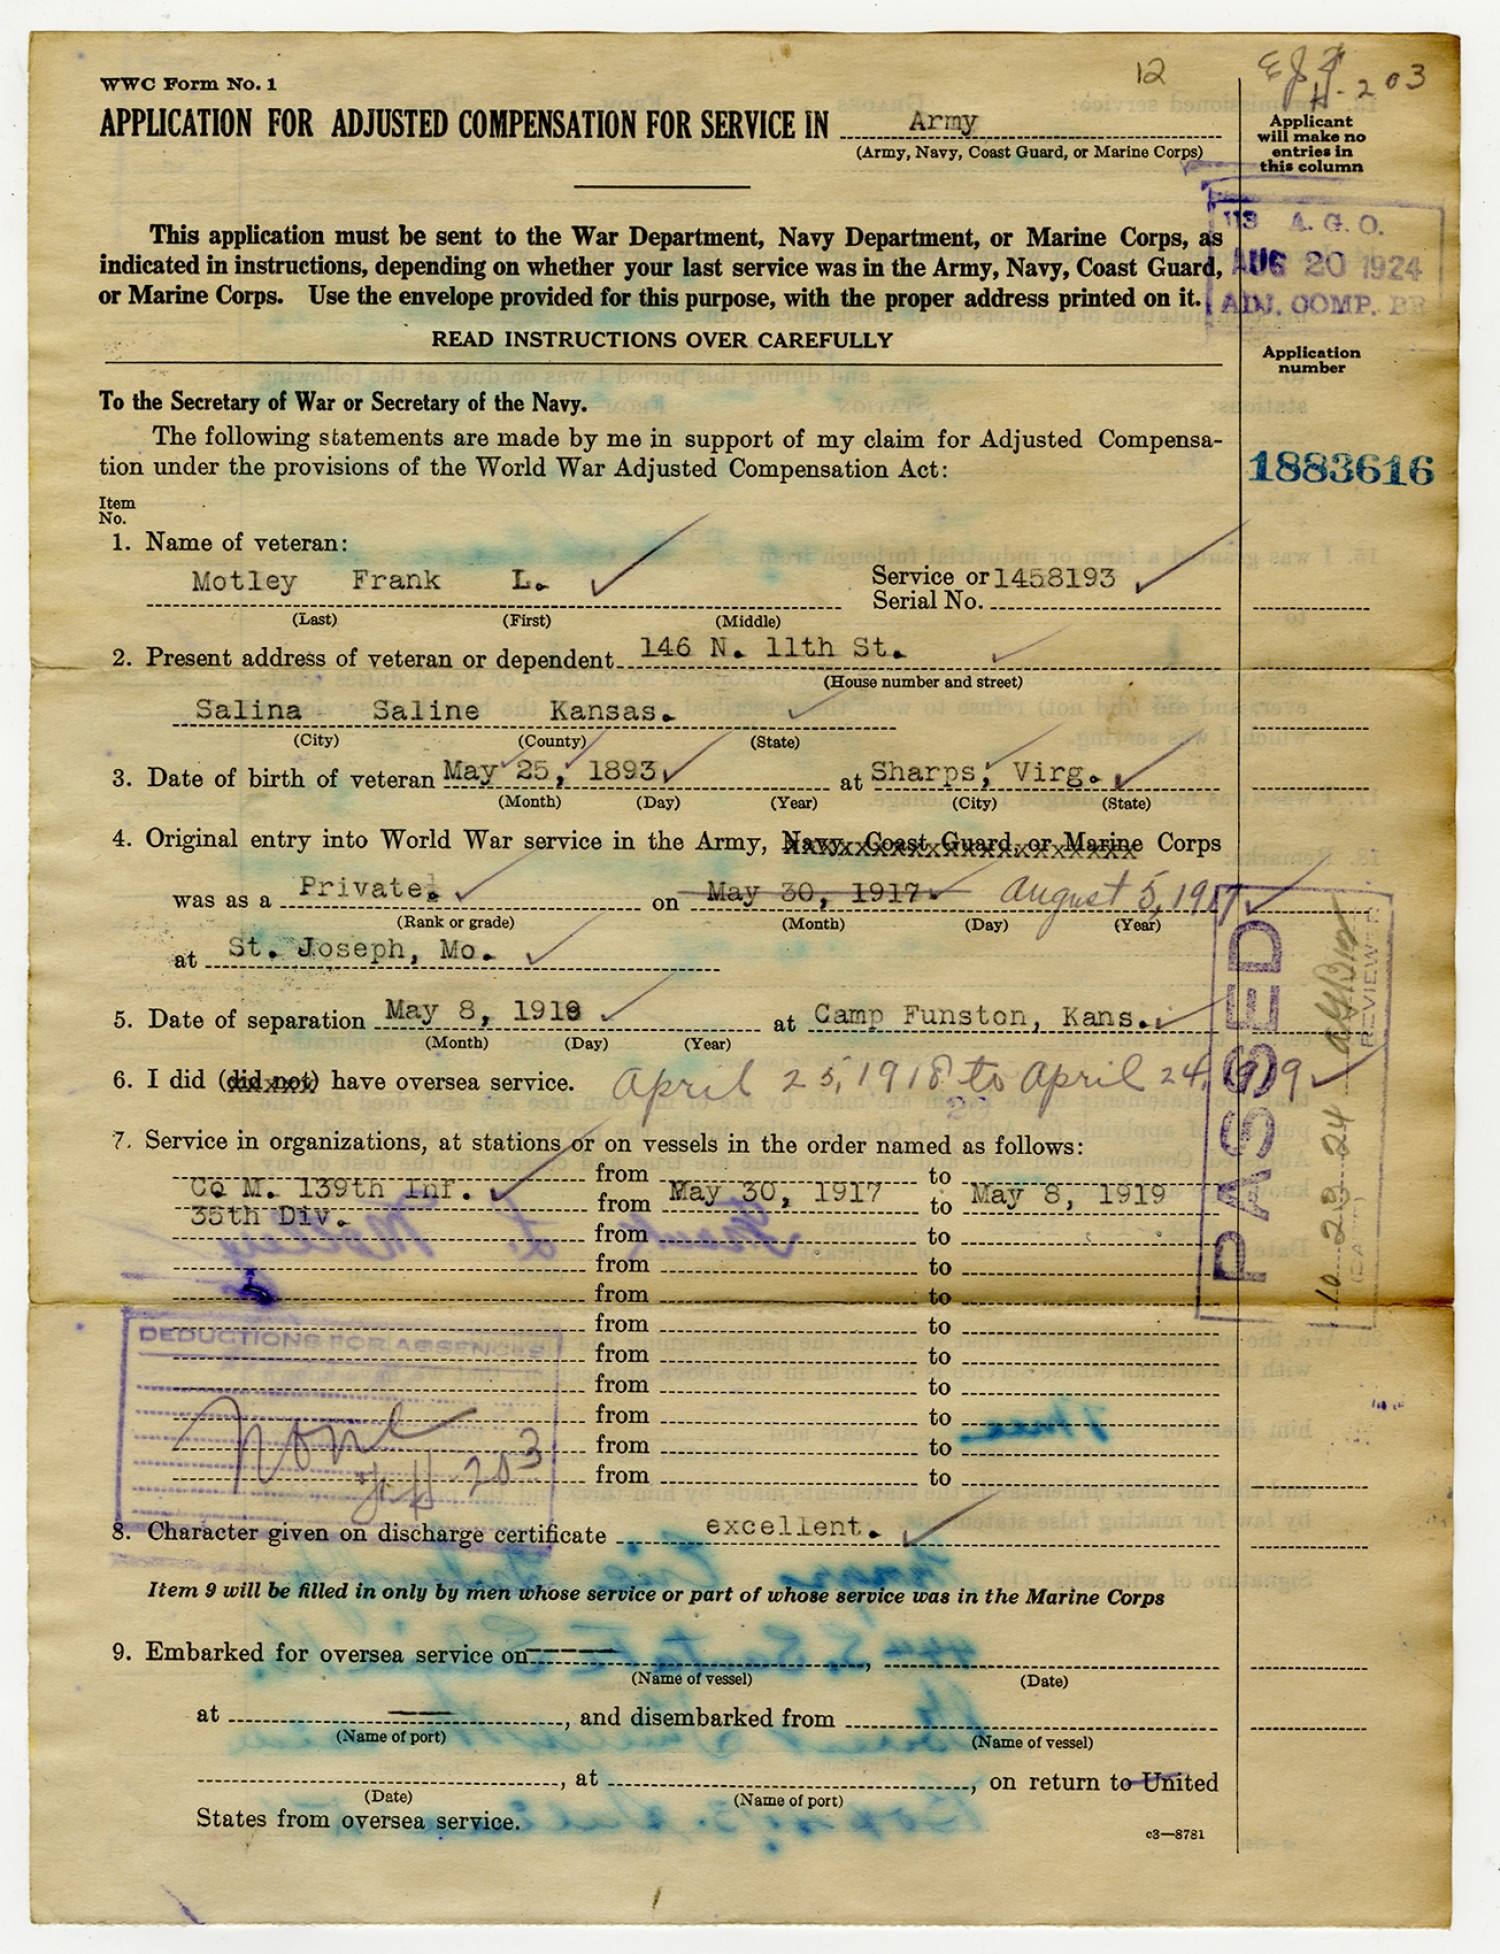 WWC Form No. 1
12
203
APPLICATION FOR ADJUSTED COMPENSATION FOR SERVICE IN Army
(Army, Navy, Coast Guard, or Marine Corps)
Applicant
will make no
entries in
this column
This application must be sent to the War Department, Navy Department, or Marine Corps, as
indicated in instructions, depending on whether your last service was in the Army, Navy, Coast Guard,
or Marine Corps. Use the envelope provided for this purpose, with the proper address printed on it.
113 A. G. O.
AUG 20 1924
ADJ. COMP. BR
READ INSTRUCTIONS OVER CAREFULLY
Application
number
To the Secretary of War or Secretary of the Navy.
The following statements are made by me in support of my claim for Adjusted Compensa-
tion under the provisions of the World War Adjusted Compensation Act:
1883616
Item
No.
1. Name of veteran:
Motley Frank L. Service or 1458193
Serial No.
(Last) (First) (Middle)
2. Present address of veteran or dependent 146 N. 11th St.
(House number and street)
Salina Saline Kansas.
(City) (County) (State)
3. Date of birth of veteran May 25, 1893 at Sharps, Virg.
(Month) (Day) (Year) (City) (State)
4. Original entry into World War service in the Army, Navy, Coast Guard, or Marine Corps
was as a Private. on May 30, 1917 August 5, 1917
(Rank or grade) (Month) (Day) (Year)
at St. Joseph, Mo.
5. Date of separation May 8, 1919 at Camp Funston, Kans.
(Month) (Day) (Year)
6. I did (did not) have oversea service. April 25, 1918 to April 24, 1919
7. Service in organizations, at stations or on vessels in the order named as follows:
from to
Co M. 139th Inf. from May 30, 1917 to May 8, 1919
35th Div.
from to
from to
from to
from to
from to
from to
from to
from to
from to
PASSED
REVIEWER
10 23 24
DEDUCTIONS FOR ABSENCES
None
203
8. Character given on discharge certificate excellent.
Item 9 will be filled in only by men whose service or part of whose service was in the Marine Corps
9. Embarked for oversea service on ,
(Name of vessel) (Date)
at , and disembarked from
(Name of port) (Name of vessel)
, at , on return to United
(Date) (Name of port)
States from oversea service.
c3—8781